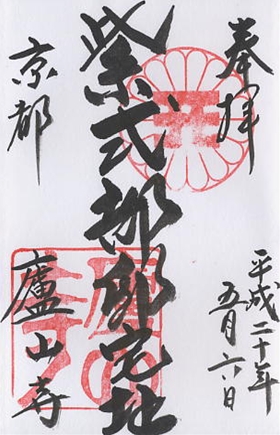 奉拝
平成二十年
五月六日
紫式部邸宅址
京都
廬山寺